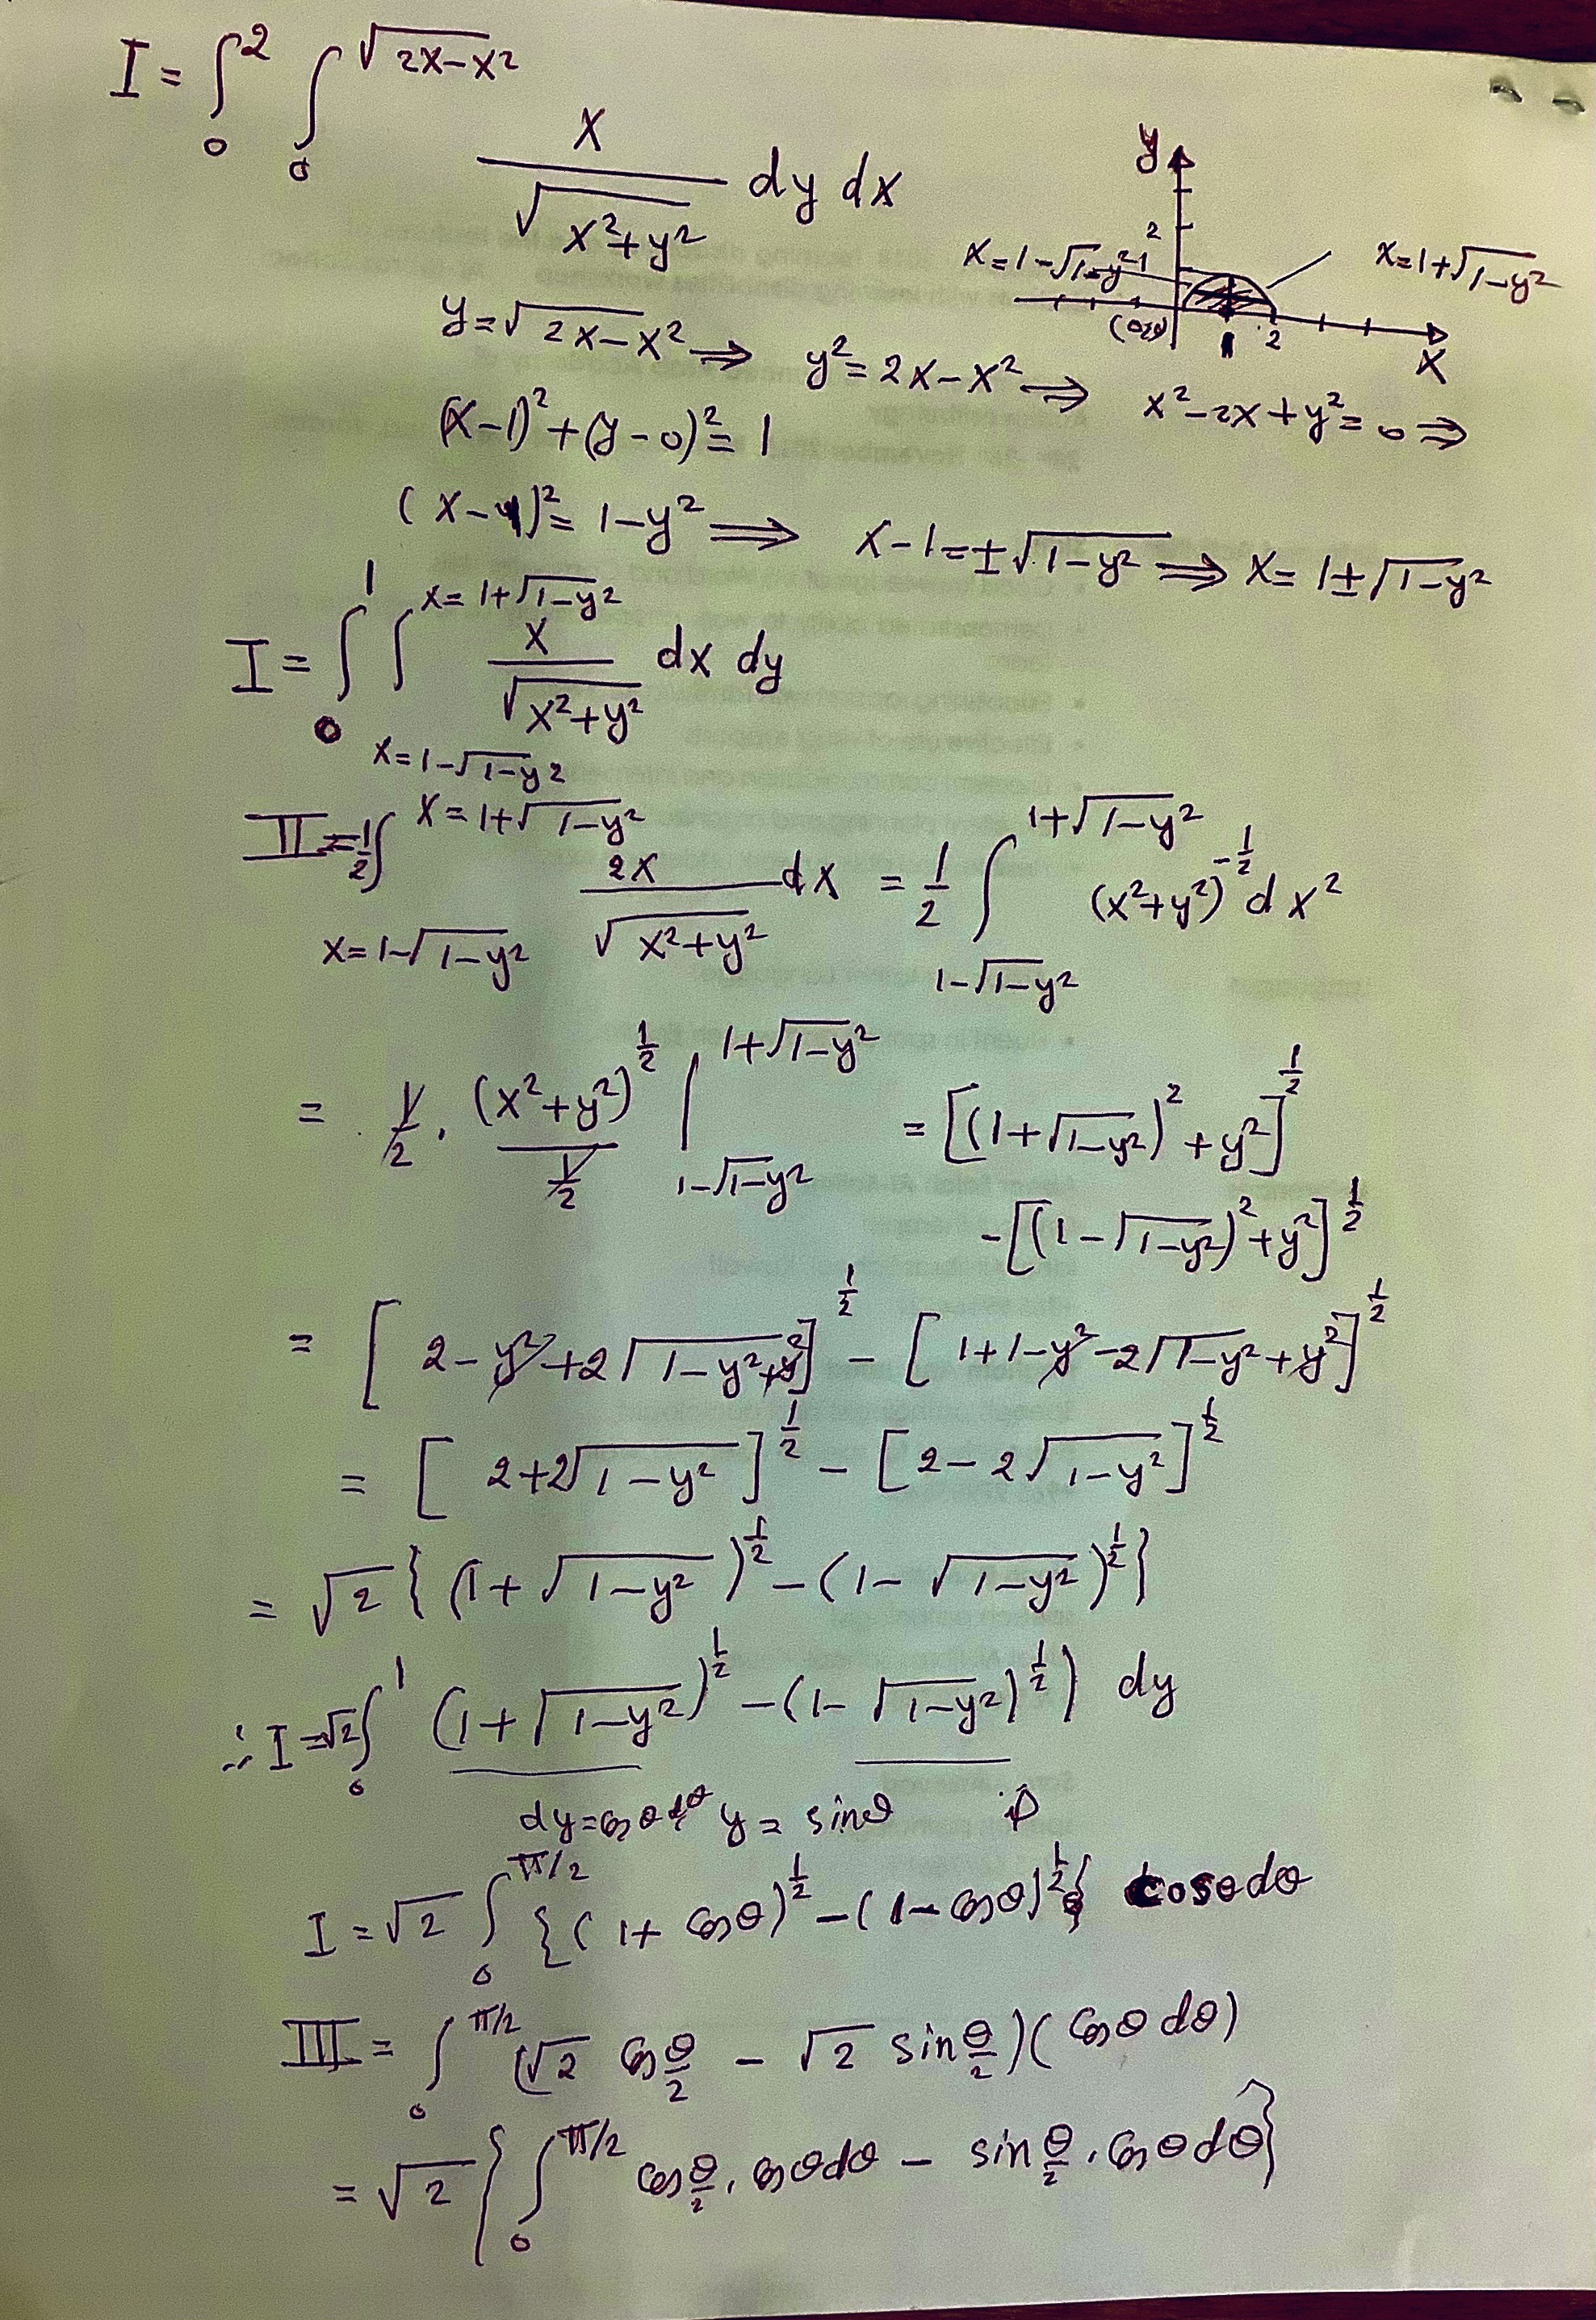 I = ∫₀² ∫₀^√(2x-x²) x/√(x²+y²) dy dx
y
2
1
x=1-√(1-y²)
x=1+√(1-y²)
(0,0) 1 2
x
y=√(2x-x²) ⟹ y²=2x-x² ⟹ x²-2x+y²=0 ⟹
(x-1)²+(y-0)²=1
(x-1)²=1-y² ⟹ x-1=±√(1-y²) ⟹ x=1±√(1-y²)
I = ∫₀¹ ∫_{x=1-√(1-y²)}^{x=1+√(1-y²)} x/√(x²+y²) dx dy
II = 1/2 ∫_{x=1-√(1-y²)}^{x=1+√(1-y²)} 2x/√(x²+y²) dx = 1/2 ∫_{1-√(1-y²)}^{1+√(1-y²)} (x²+y²)^{-1/2} dx²
= 1/2 · (x²+y²)^{1/2}/(1/2) |_{1-√(1-y²)}^{1+√(1-y²)} = [(1+√(1-y²))²+y²]^{1/2}
-[(1-√(1-y²))²+y²]^{1/2}
= [2-y²+2√(1-y²)+y²]^{1/2} - [1+1-y²-2√(1-y²)+y²]^{1/2}
= [2+2√(1-y²)]^{1/2} - [2-2√(1-y²)]^{1/2}
= √2 {(1+√(1-y²))^{1/2} - (1-√(1-y²))^{1/2}}
∴ I=√2 ∫₀¹ (1+√(1-y²))^{1/2} - (1-√(1-y²))^{1/2}) dy
dy=cosθdθ y=sinθ
I=√2 ∫₀^{π/2} {(1+cosθ)^{1/2} - (1-cosθ)^{1/2}} cosθdθ
III = ∫₀^{π/2} (√2 cos θ/2 - √2 sin θ/2)(cosθdθ)
= √2 {∫₀^{π/2} cos θ/2 . cosθdθ - sin θ/2 . cosθdθ}